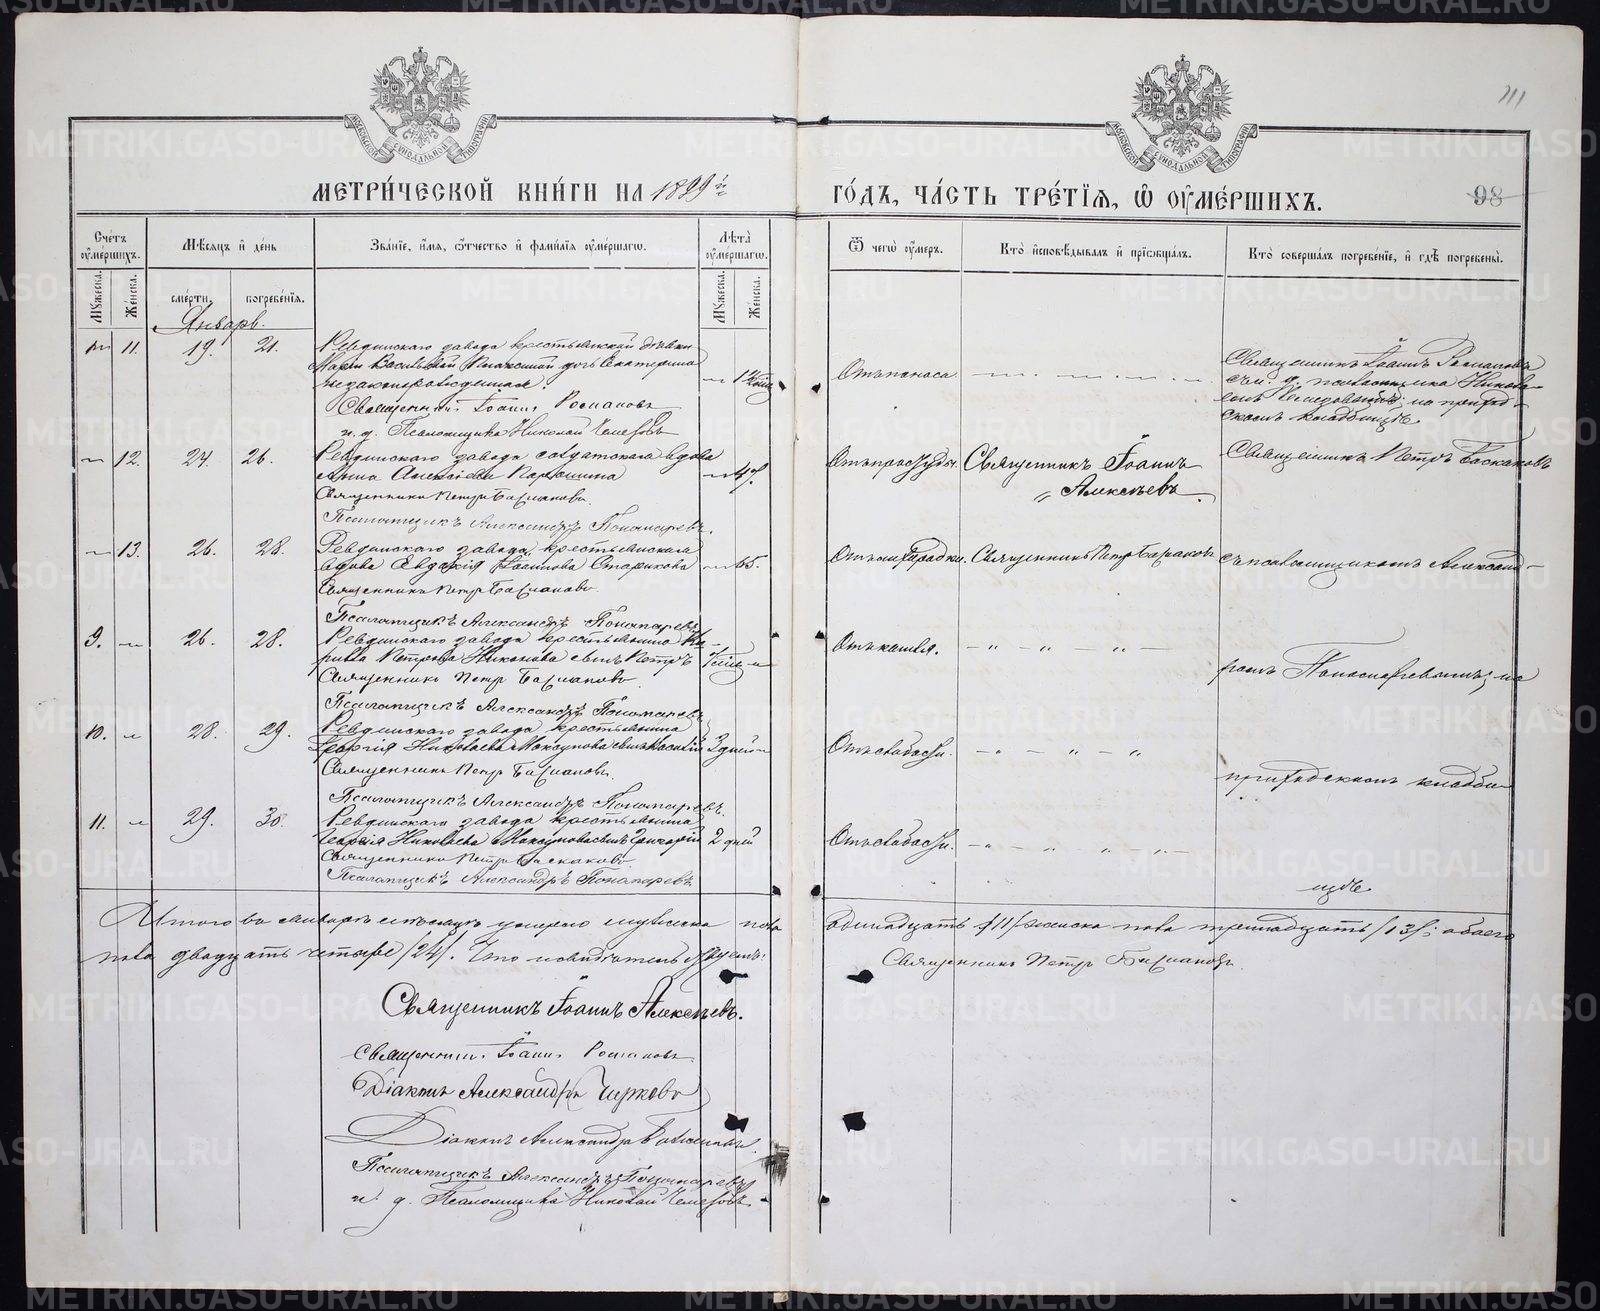 МЕТРИ́ЧЕСКОЙ КНИ́ГИ НА 1899й ГО́ДЪ, ЧА́СТЬ ТРЕ́ТІѦ, Ѡ ОУМЕ́РШИХЪ.
111
98
Сче́тъ оуме́ршихъ.
Мѣсяцъ и де́нь
Зва́ніе, и́мя, о́тчество и фами́лія оуме́ршагѡ.
Лѣ́та оуме́ршагѡ.
Ѿ чегѡ̀ оу́меръ.
Кто̀ исповѣ́дывалъ и пріѡбща́лъ.
Кто̀ соверша́лъ погребе́ніе, и гдѣ̀ погребены̀.
Му́жеска.
Же́нска.
сме́рти.
погребе́нія.
Му́жеска.
Же́нска.
Январь.
11. 19. 21. Ревдинскаго завода крестьянской дѣвки
Маріи Васильевой дочь Екатерина
незаконнорожденная.
Священникъ Іоаннъ Романовъ
и. д. Псаломщика Николай Чемезовъ
Отъ поноса
Священникъ Іоаннъ Романовъ
съ и. д. псаломщика Никола-
емъ Чемезовымъ; на приход-
скомъ кладбищѣ.
12. 24. 26. Ревдинскаго завода солдатская вдова
Анна
Священникъ Петръ Баскаковъ.
Псаломщикъ Александръ Пономаревъ.
Отъ простуды.
Священникъ Іоаннъ
Алексѣевъ.
Священникъ Петръ Баскаковъ
13. 26. 28. Ревдинскаго завода, крестьянская
вдова Евдокія Старикова 65.
Священникъ Петръ Баскаковъ.
Псаломщикъ Александръ Пономаревъ
Священникъ Петръ Баскаковъ
съ псаломщикомъ Александ-
9. 26. 28. Ревдинскаго завода крестьянина Ки-
рилла Петрова Никонова сынъ Петръ
Священникъ Петръ Баскаковъ.
Псаломщикъ Александръ Пономаревъ
Отъ кашля.
ромъ Пономаревымъ; на
10. 28. 29. Ревдинскаго завода крестьянина
Георгія Николаева сынъ Василій 3 дней
Священникъ Петръ Баскаковъ.
Псаломщикъ Александръ Пономаревъ.
Отъ слабости.
приходскомъ кладби-
11. 29. 30. Ревдинскаго завода крестьянина
Георгія Николаева сынъ Григорій 2 дней
Священникъ Петръ Баскаковъ
Псаломщикъ Александръ Пономаревъ
Отъ слабости.
щѣ.
Итого въ Январѣ мѣсяцѣ умерло мужеска пола одиннадцать /11/ женска пола тринадцать /13/; обоего
пола двадцать четыре /24/. Священникъ Петръ Баскаковъ.
Священникъ Іоаннъ Алексѣевъ.
Священникъ Іоаннъ Романовъ
Діаконъ Александръ Чирковъ
Діаконъ Александръ
Псаломщикъ Александръ Пономаревъ
и. д. Псаломщика Николай Чемезовъ
METRIKI.GASO-URAL.RU